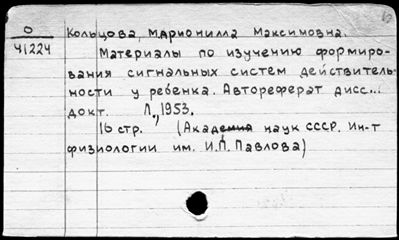 О
41224
Кольцова, Марионилла Максимовна.
Материалы по изучению формиро-
вания сигнальных систем действитель-
ности у ребенка. Автореферат дисс...
докт. Л., 1953.
16 стр. (Академия наук СССР. Ин-т
физиологии им. И.П. Павлова)